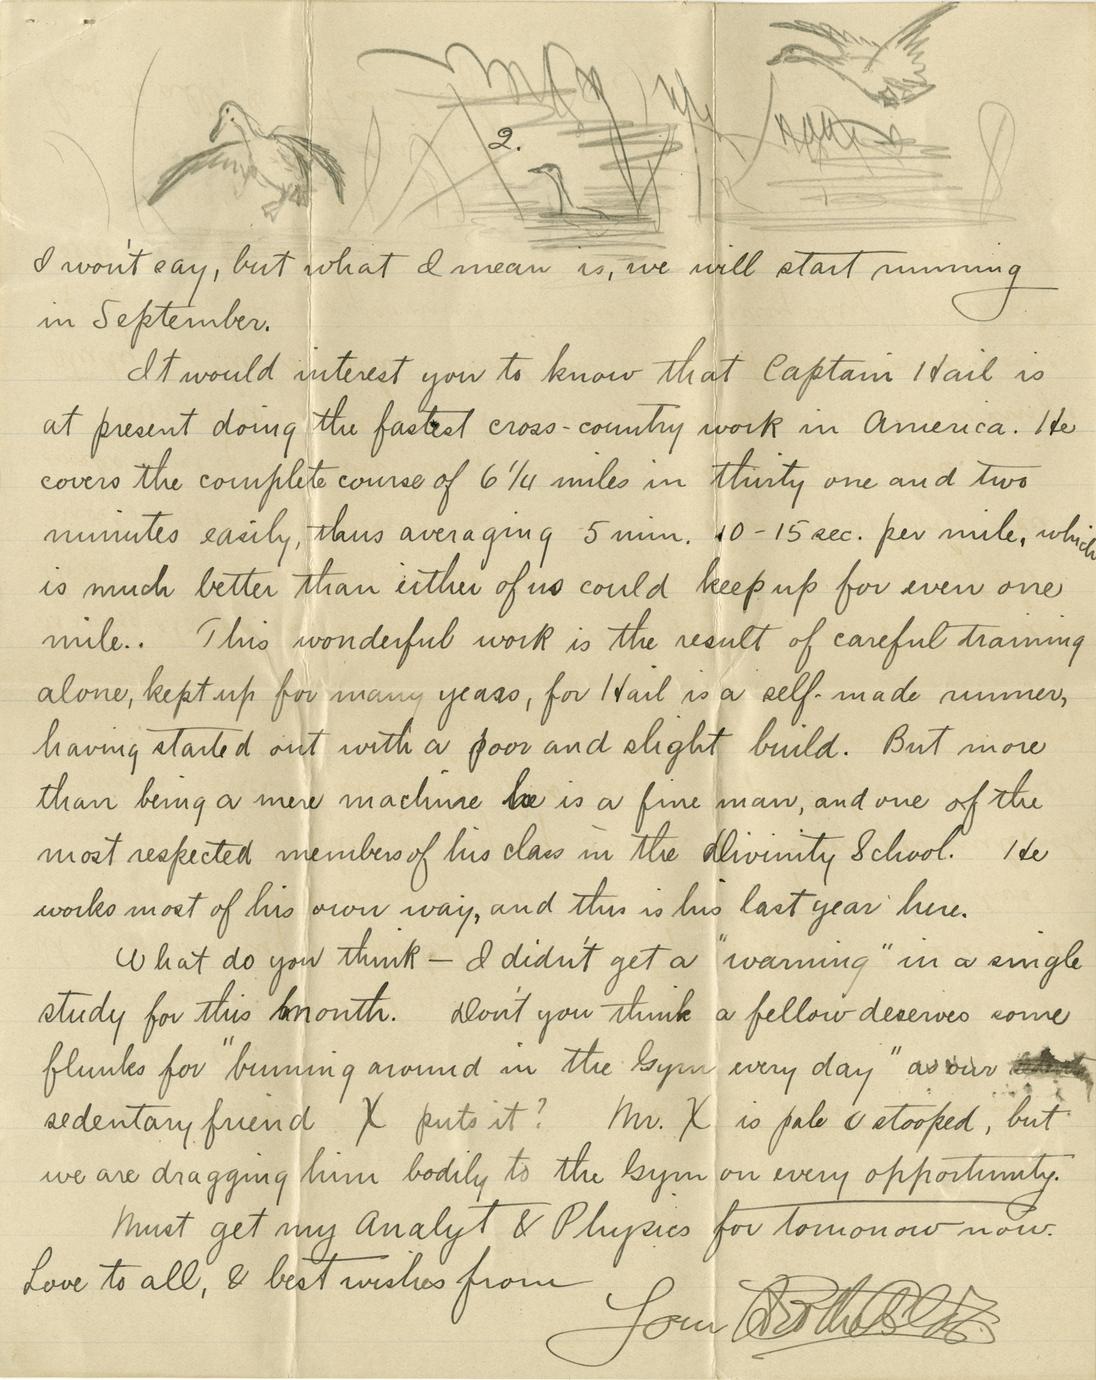 2.
I won't say, but what I mean is, we will start running
in September.
It would interest you to know that Captain Hail is
at present doing the fastest cross-country work in America. He
covers the complete course of 6 1/4 miles in thirty one and two
minutes easily, thus averaging 5 min. 10-15 sec. per mile, which
is much better than either of us could keep up for even one
mile.. This wonderful work is the result of careful training
alone, kept up for many years, for Hail is a self-made runner,
having started out with a poor and slight build. But more
than being a mere machine he is a fine man, and one of the
most respected members of his class in the Divinity School. He
works most of his own way, and this is his last year here.
What do you think — I didn't get a "warning" in a single
study for this month. Don't you think a fellow deserves some
flunks for "bumming around in the Gym every day" as our
sedentary friend X puts it? Mr. X is pale & stooped, but
we are dragging him bodily to the Gym on every opportunity.
Must get my Analyt & Physics for tomorrow now.
Love to all, & best wishes from
Your